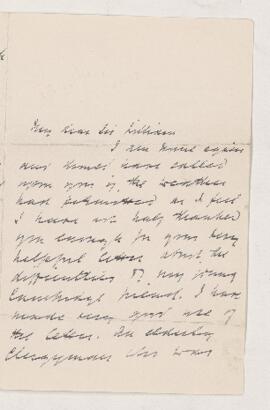 My dear Sir William
I am home again
and should have called
upon you if the weather
had permitted as I feel
I have not half thanked
you enough for your very
helpful letter about the
difficulties of my young
Cambridge friend. I have
made very good use of
the letter. An elderly
Clergyman who was